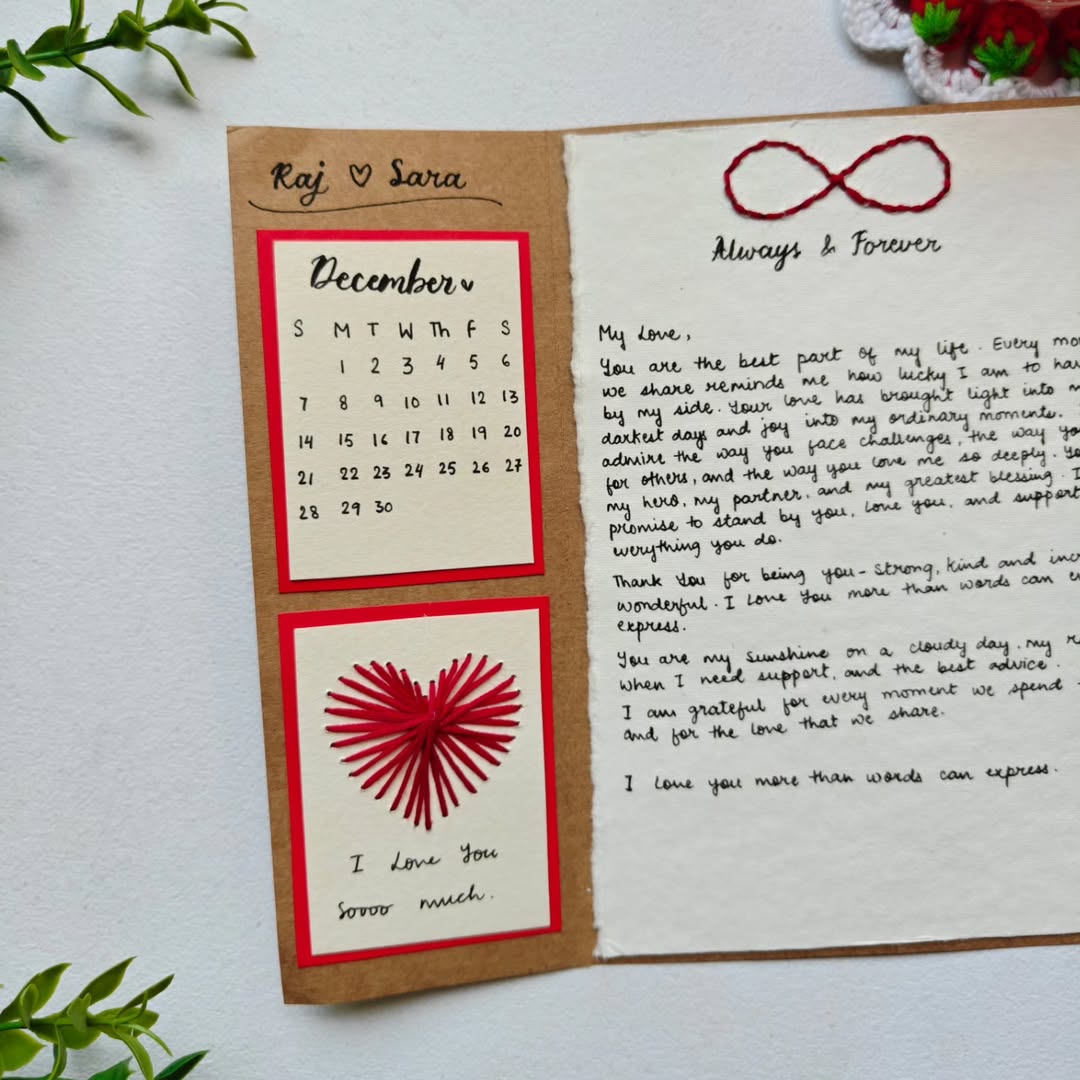 Raj ♡ Sara
December
S M T W Th F S
1 2 3 4 5 6
7 8 9 10 11 12 13
14 15 16 17 18 19 20
21 22 23 24 25 26 27
28 29 30
I Love You
Soooo much.
Always & Forever
My Love,
You are the best part of my life. Every
we share reminds me how lucky I am to
by my side. Your love has brought light into
darkest days and joy into my ordinary moments.
admire the way you face challenges, the way
for others, and the way you love me so deeply.
my hero, my partner, and my greatest blessing. I
promise to stand by you, love you, and support
everything you do.
Thank You for being you - Strong, kind and
wonderful. I Love You more than words can
express.
You are my sunshine on a cloudy day, my
when I need support, and the best advice.
I am grateful for every moment we spend
and for the love that we share.
I Love you more than words can express.